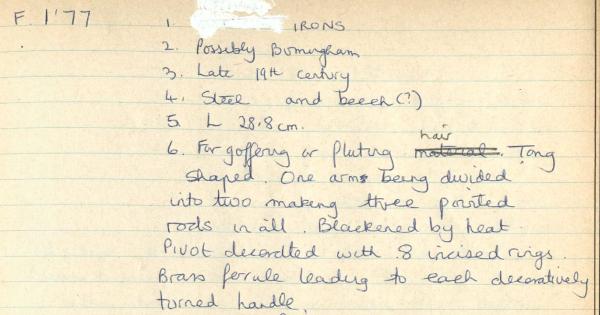 F. 1'77
1. IRONS
2. Possibly Birmingham
3. Late 19th century
4. Steel and beech (?)
5. L 28.8cm.
hair
6. For goffering or fluting material. Tong
shaped. One arm being divided
into two making three pointed
rods in all. Blackened by heat.
Pivot decorated with 8 incised rings.
Brass ferule leading to each decoratively
turned handle.